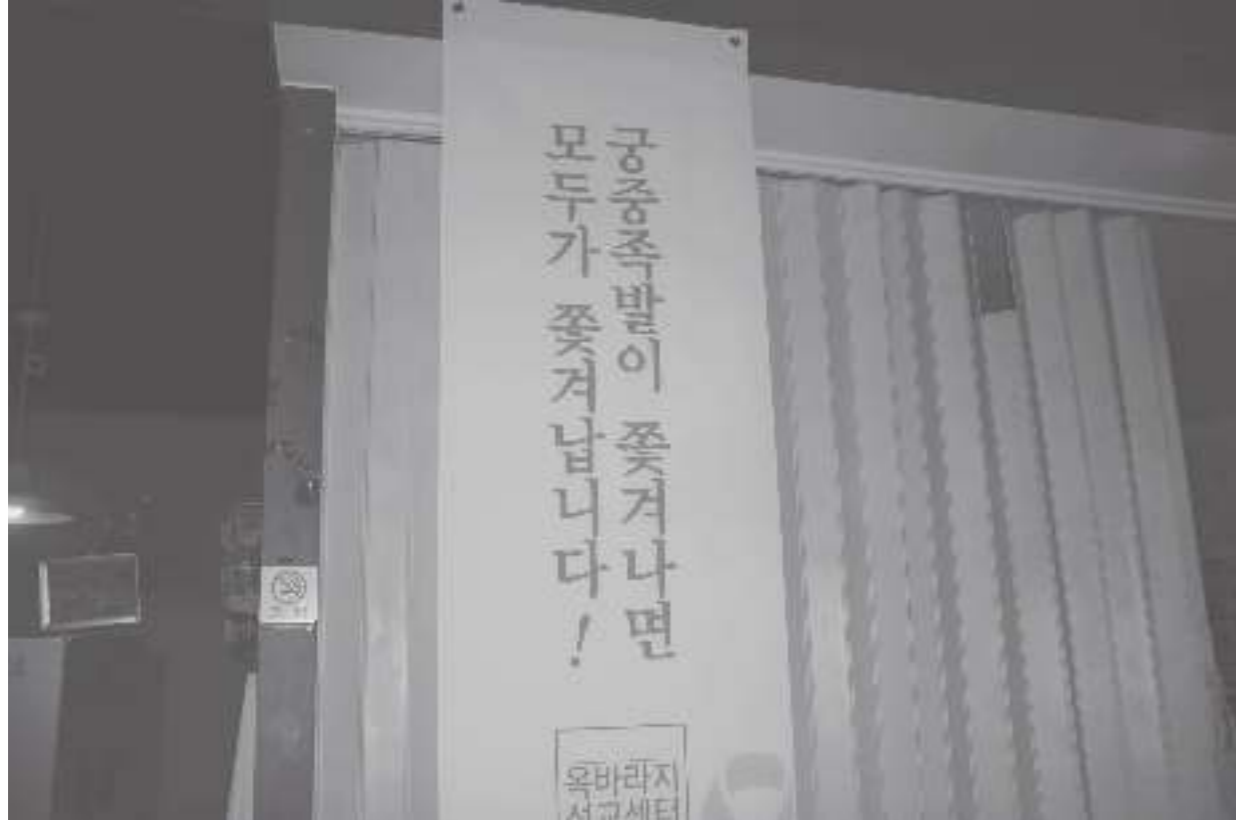 궁중족발이 쫓겨나면
모두가 쫓겨납니다!
옥바라지
선교센터